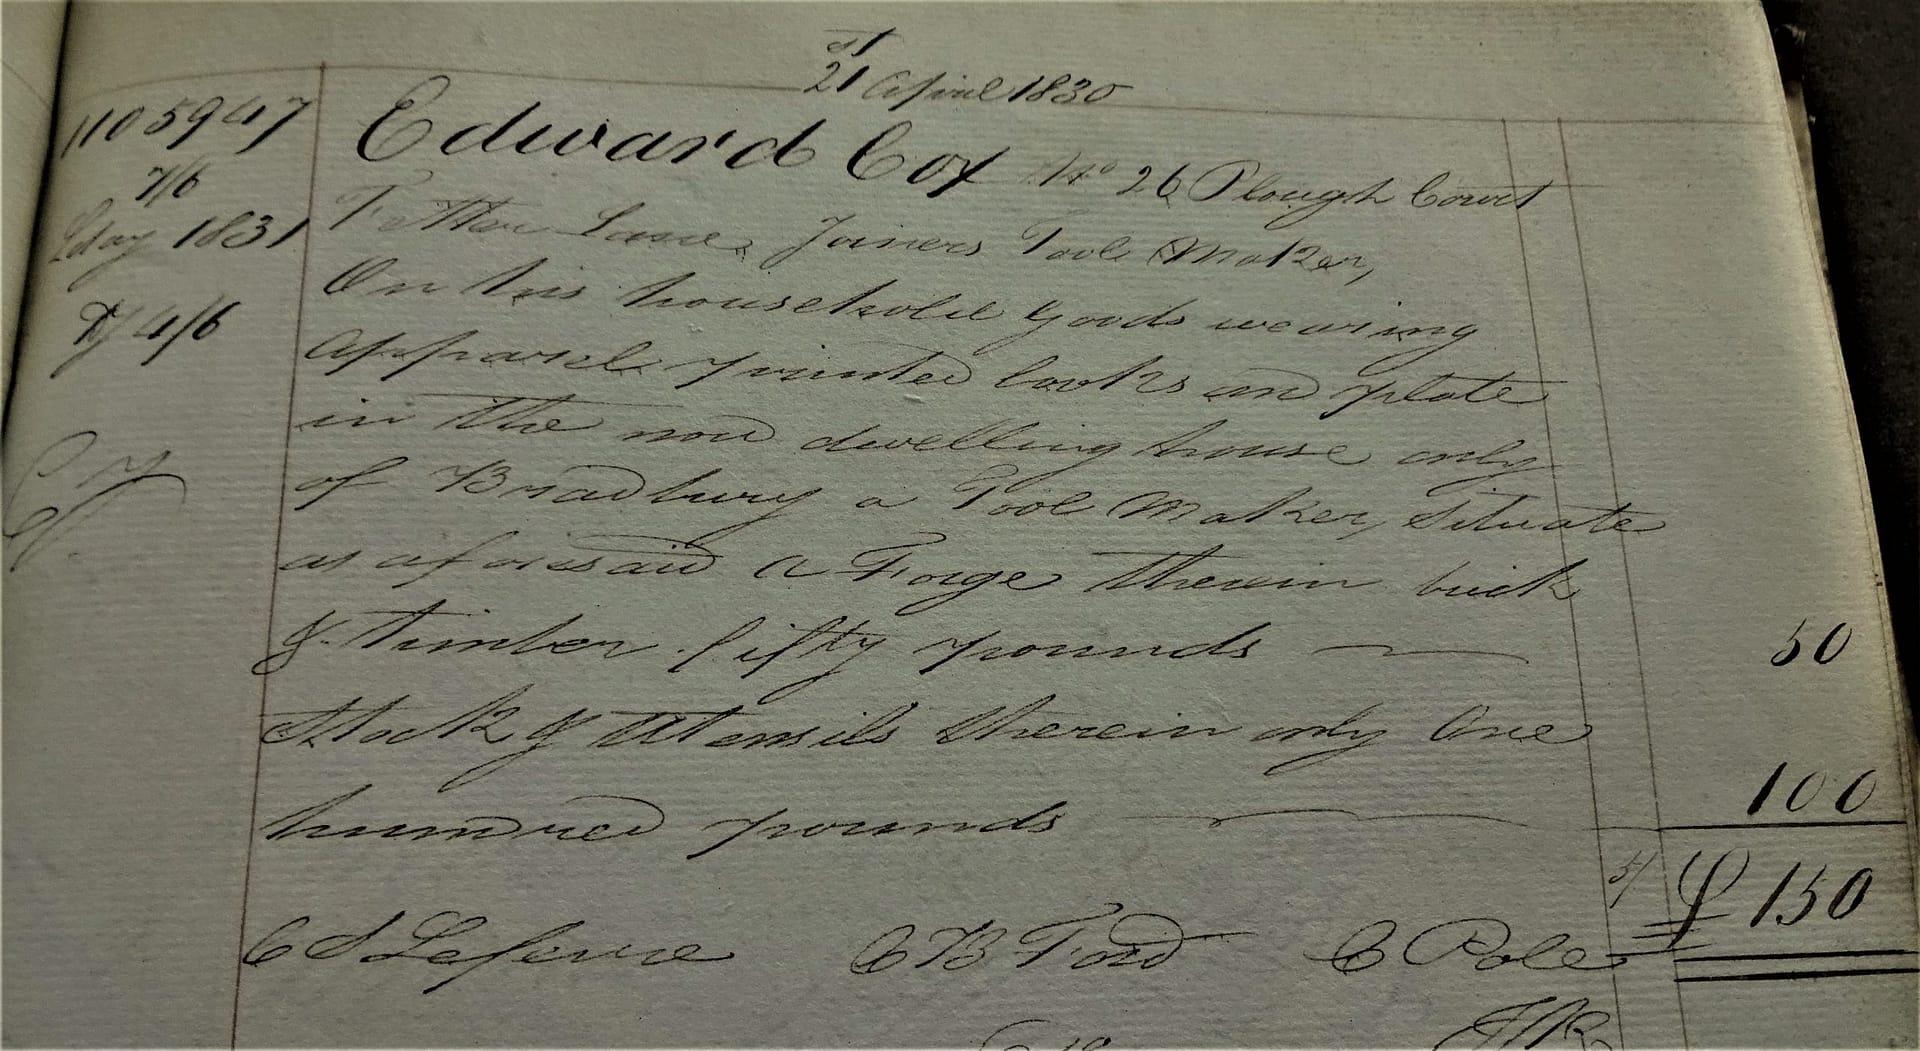 21st April 1830
1105947
7/6
Lday 1831
Dy 4/6
Edward Cox No 26 Plough Court
Fetter Lane, Joiners Tool Maker,
On his household goods wearing
apparel printed books and plate
in the now dwelling house only
of Bradbury a Tool Maker, Situate
as aforesaid a Forge therein brick
& timber fifty pounds 50
Stock & Utensils therein only One
hundred pounds 100
5/ £ 150
C S Lefevre C B Ford C Pole